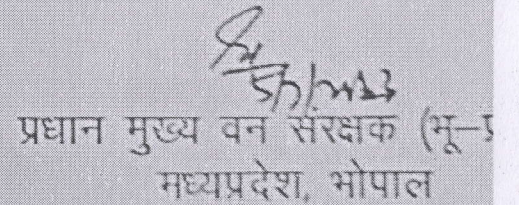 प्रधान मुख्य वन संरक्षक (भू-प्र
मध्यप्रदेश, भोपाल